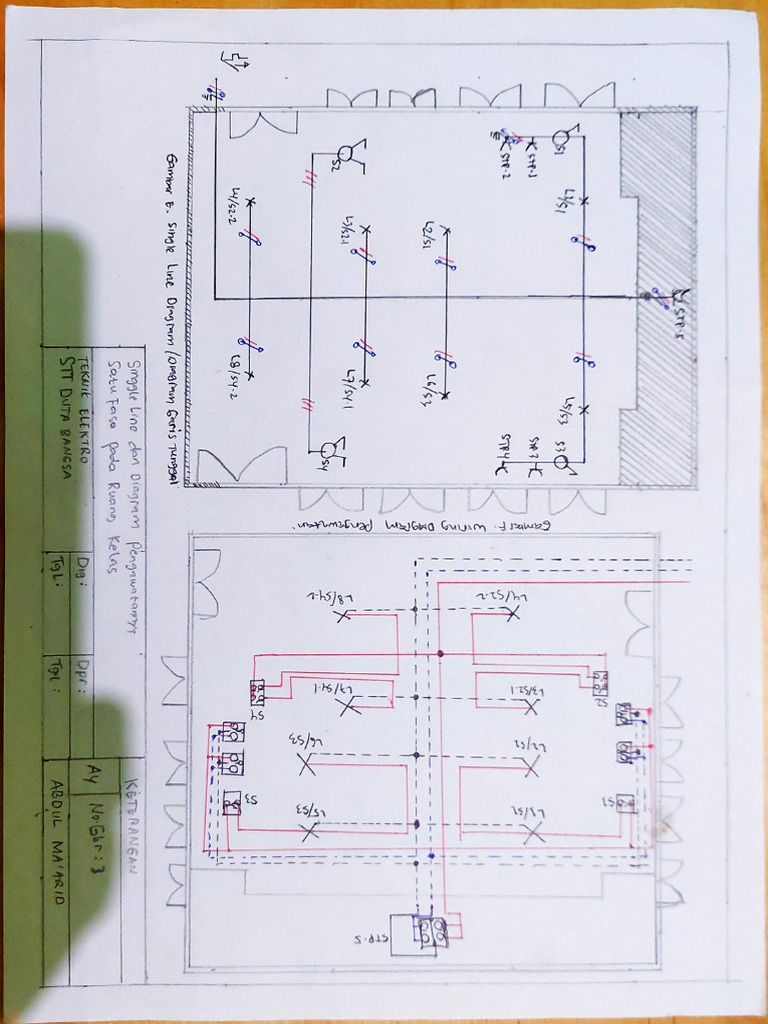 STP.5
S1
STP.1
STP.2
L1/S1
L5/S3
S3
STP.3
STP.4
L2/S1
L6/S3
L3/S2.1
L7/S4.1
S2
S4
L4/S2.2
L8/S4.2
Gambar E. Single Line Diagram / Diagram Garis Tunggal
Gambar F. Wiring Diagram Pengawatan
L8/S4.2
L4/S2.2
L7/S4.1
L3/S2.1
S4
S2
L6/S3
L2/S1
S3
S1
L5/S3
L1/S1
STP.5
Singgle Line dan Diagram Pengawatannya
Satu Fasa pada Ruang Kelas
KETERANGAN
TEKNIK ELEKTRO
STT DUTA BANGSA
Dig :
Dpr :
Tgl :
Tgl :
A4
No. Gbr : 3
ABDUL MA'ARID